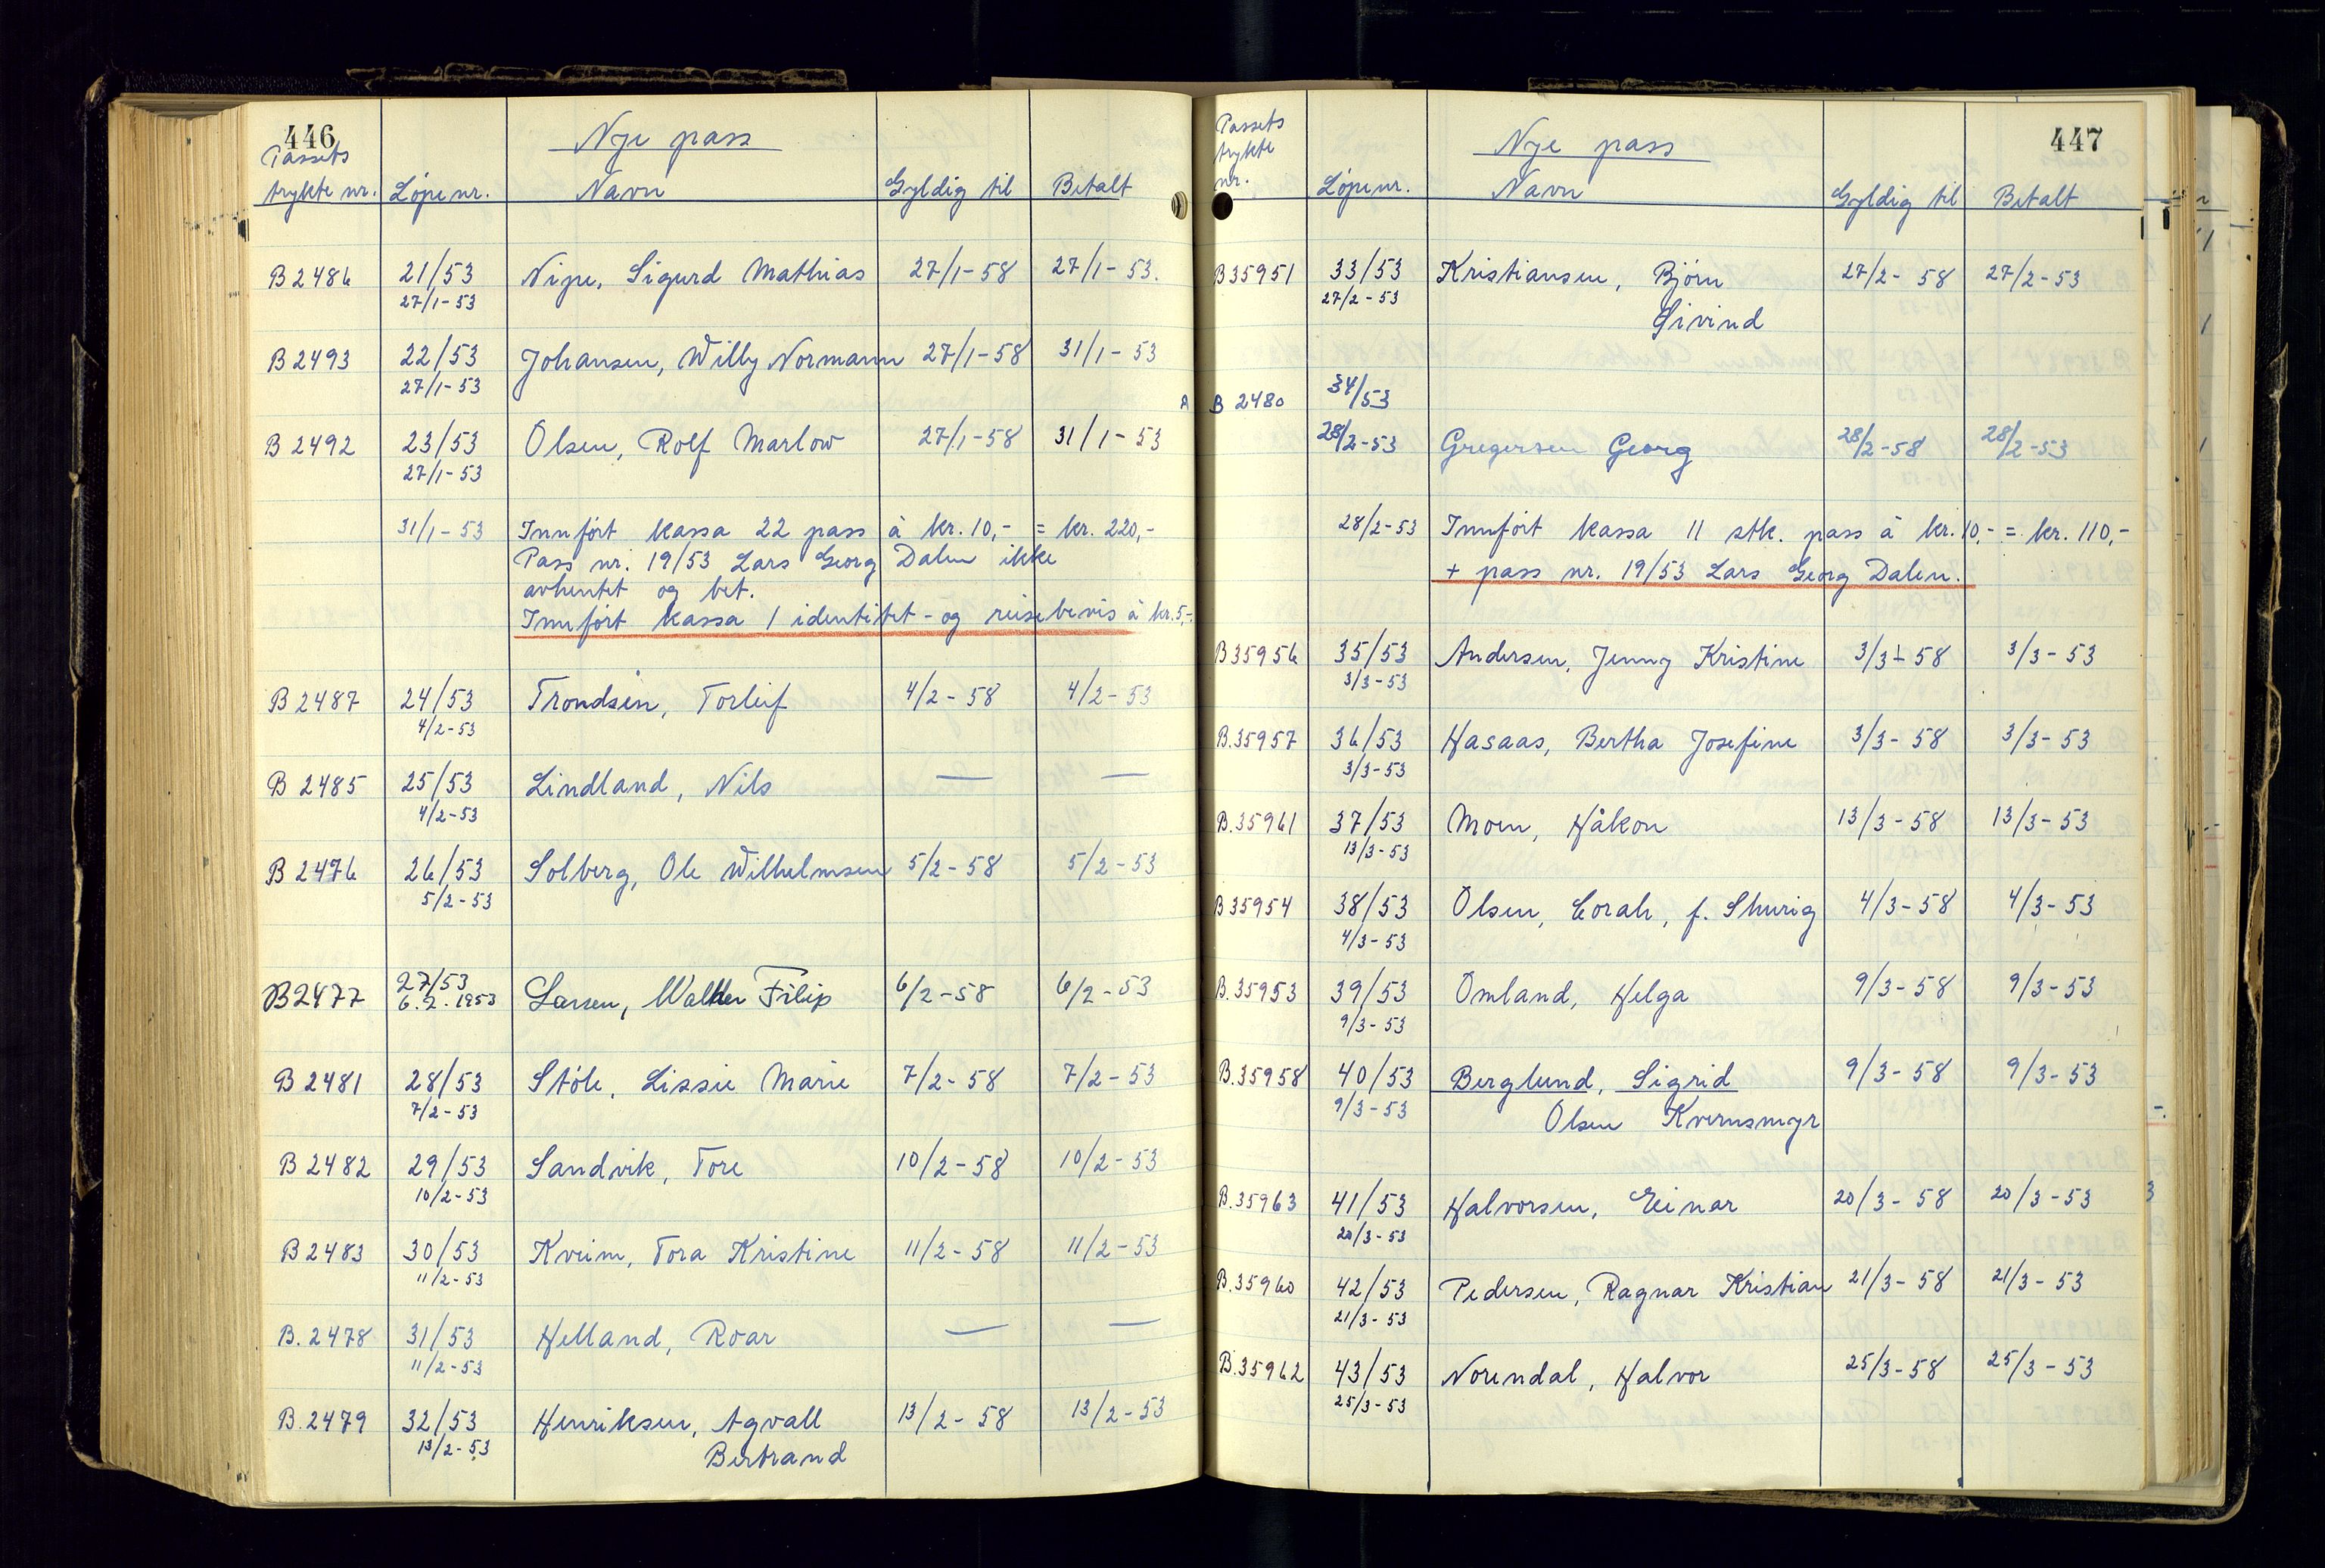 446
Nye pass
Passets
trykte nr. Löpe nr. Navn Gyldig til Betalt
B 2486 21/53 Nipe, Sigurd Mathias 27/1-58 27/1-53.
27/1-53
B 2493 22/53 Johansen, Willy Normann 27/1-58 31/1-53
27/1-53
B 2492 23/53 Olsen, Rolf Marlow 27/1-58 31/1-53
27/1-53
31/1-53 Innfört kassa 22 pass à kr. 10,- = kr. 220,-
Pass nr. 19/53 Lars Georg Dalen ikke
avhentet og bet.
Innfört kassa 1 identitet- og reisebevis à kr. 5,-.
B 2487 24/53 Trondsen, Torleif 4/2-58 4/2-53
4/2-53
B 2485 25/53 Lindland, Nils — —
4/2-53
B 2476 26/53 Solberg, Ole Wilhelmsen 5/2-58 5/2-53
5/2-53
B2477 27/53 Larsen, Walther Filip 6/2-58 6/2-53
6.2.1953
B 2481 28/53 Ståle, Lissie Marie 7/2-58 7/2-53
7/2-53
B 2482 29/53 Sandvik, Tore 10/2-58 10/2-53
10/2-53
B 2483 30/53 Kveim, Tora Kristine 11/2-58 11/2-53
11/2-53
B. 2478 31/53 Helland, Roar — —
11/2-53
B. 2479 32/53 Henriksen, Agvall 13/2-58 13/2-53
13/2-53 Bertrand
447
Nye pass
Passets
trykte
nr. Löpenr. Navn Gyldig til Betalt
B35951 33/53 Kristiansen, Björn 27/2-58 27/2-53
27/2-53 Eivind
A B 2480 34/53
28/2-53 Gregersen Georg 28/2-58 28/2-53
28/2-53 Innfört kassa 11 stk. pass à kr. 10,- = kr. 110,-
+ pass nr. 19/53 Lars Georg Dalen.
B35956 35/53 Andersen, Jenny Kristine 3/3-58 3/3-53
3/3-53
B.35957 36/53 Hasaas, Bertha Josefine 3/3-58 3/3-53
3/3-53
B.35961 37/53 Moen, Håkon 13/3-58 13/3-53
13/3-53
B35954 38/53 Olsen, Corah, f. Shurig 4/3-58 4/3-53
4/3-53
B.35953 39/53 Omland, Helga 9/3-58 9/3-53
9/3-53
B.35958 40/53 Berglund, Sigrid 9/3-58 9/3-53
9/3-53 Olsen Kvernsmyr
B.35963 41/53 Halvorsen, Einar 20/3-58 20/3-53
20/3-53
B.35960 42/53 Pedersen, Ragnar Kristian 21/3-58 21/3-53
21/3-53
B.35962 43/53 Norendal, Halvor 25/3-58 25/3-53
25/3-53